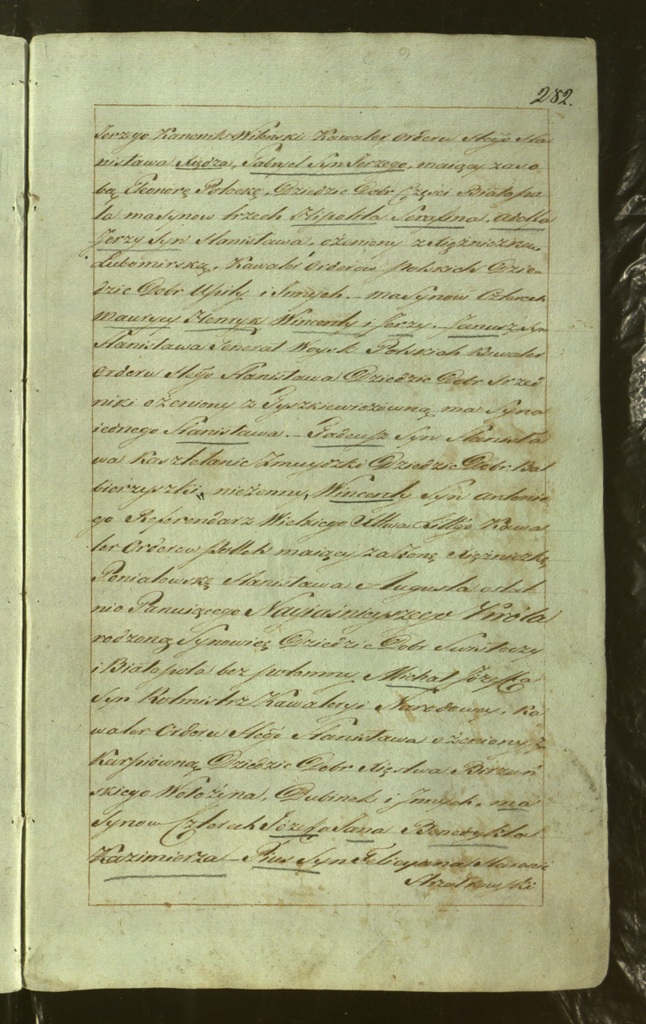 282.
Jerzego Kanonik Wileński Kawaler Orderu Stego Sta
nisława Xiądz, Gabryel Syn Jerzego, maiący za so
bą Eleonorę Potocką, Dziedzic Dobr Części Białopo
la ma Synow trzech Hipolita Serafina Adolfa
Jerzy Syn Stanisława, ożeniony z Xiężniczną
Lubomirską, Kawaler Orderow Polskich Dzie
dzic Dobr Upity i Innych – ma Synow Czterech
Maurycy Henryk Wincenty i Jerzy – Janusz Syn
Stanisława Generał Woysk Polskich Kawaler
Orderu Stego Stanisława Dziedzic Dobr Srzed
niki ożeniony z Tyszkiewiczowną ma Syna
iednego Stanisława – Tadeusz Syn Stanisła
wa Kasztelanic Zmuydzki Dziedzic Dobr Bal
bierzyszki, nieżenny, Wincenty Syn Antonie
go Referendarz Wielkiego Xttwa Littgo Kawa
ler Orderow Polłch maiący za Żonę Xiężniczkę
Poniatowską Stanisława Augusta ostat
nio Panuiącego Nayiaśnieyszego Króla
rodzoną Synowicę Dziedzic Dobr Swisłoczy
i Białopola bez potomny. Michał Józefa
Syn Rotmistrz Kawaleryi Narodowey, Ka
waler Orderu Stego Stanisława ożeniony z
Karpiowną Dziedzic Dobr Xięstwa Birzań
skiego Wołożyna, Dubinek i Innych, ma
Synow Czterech Józefa Jana Benedykta
Kazimierza – Pius Syn Felicyana Staroś